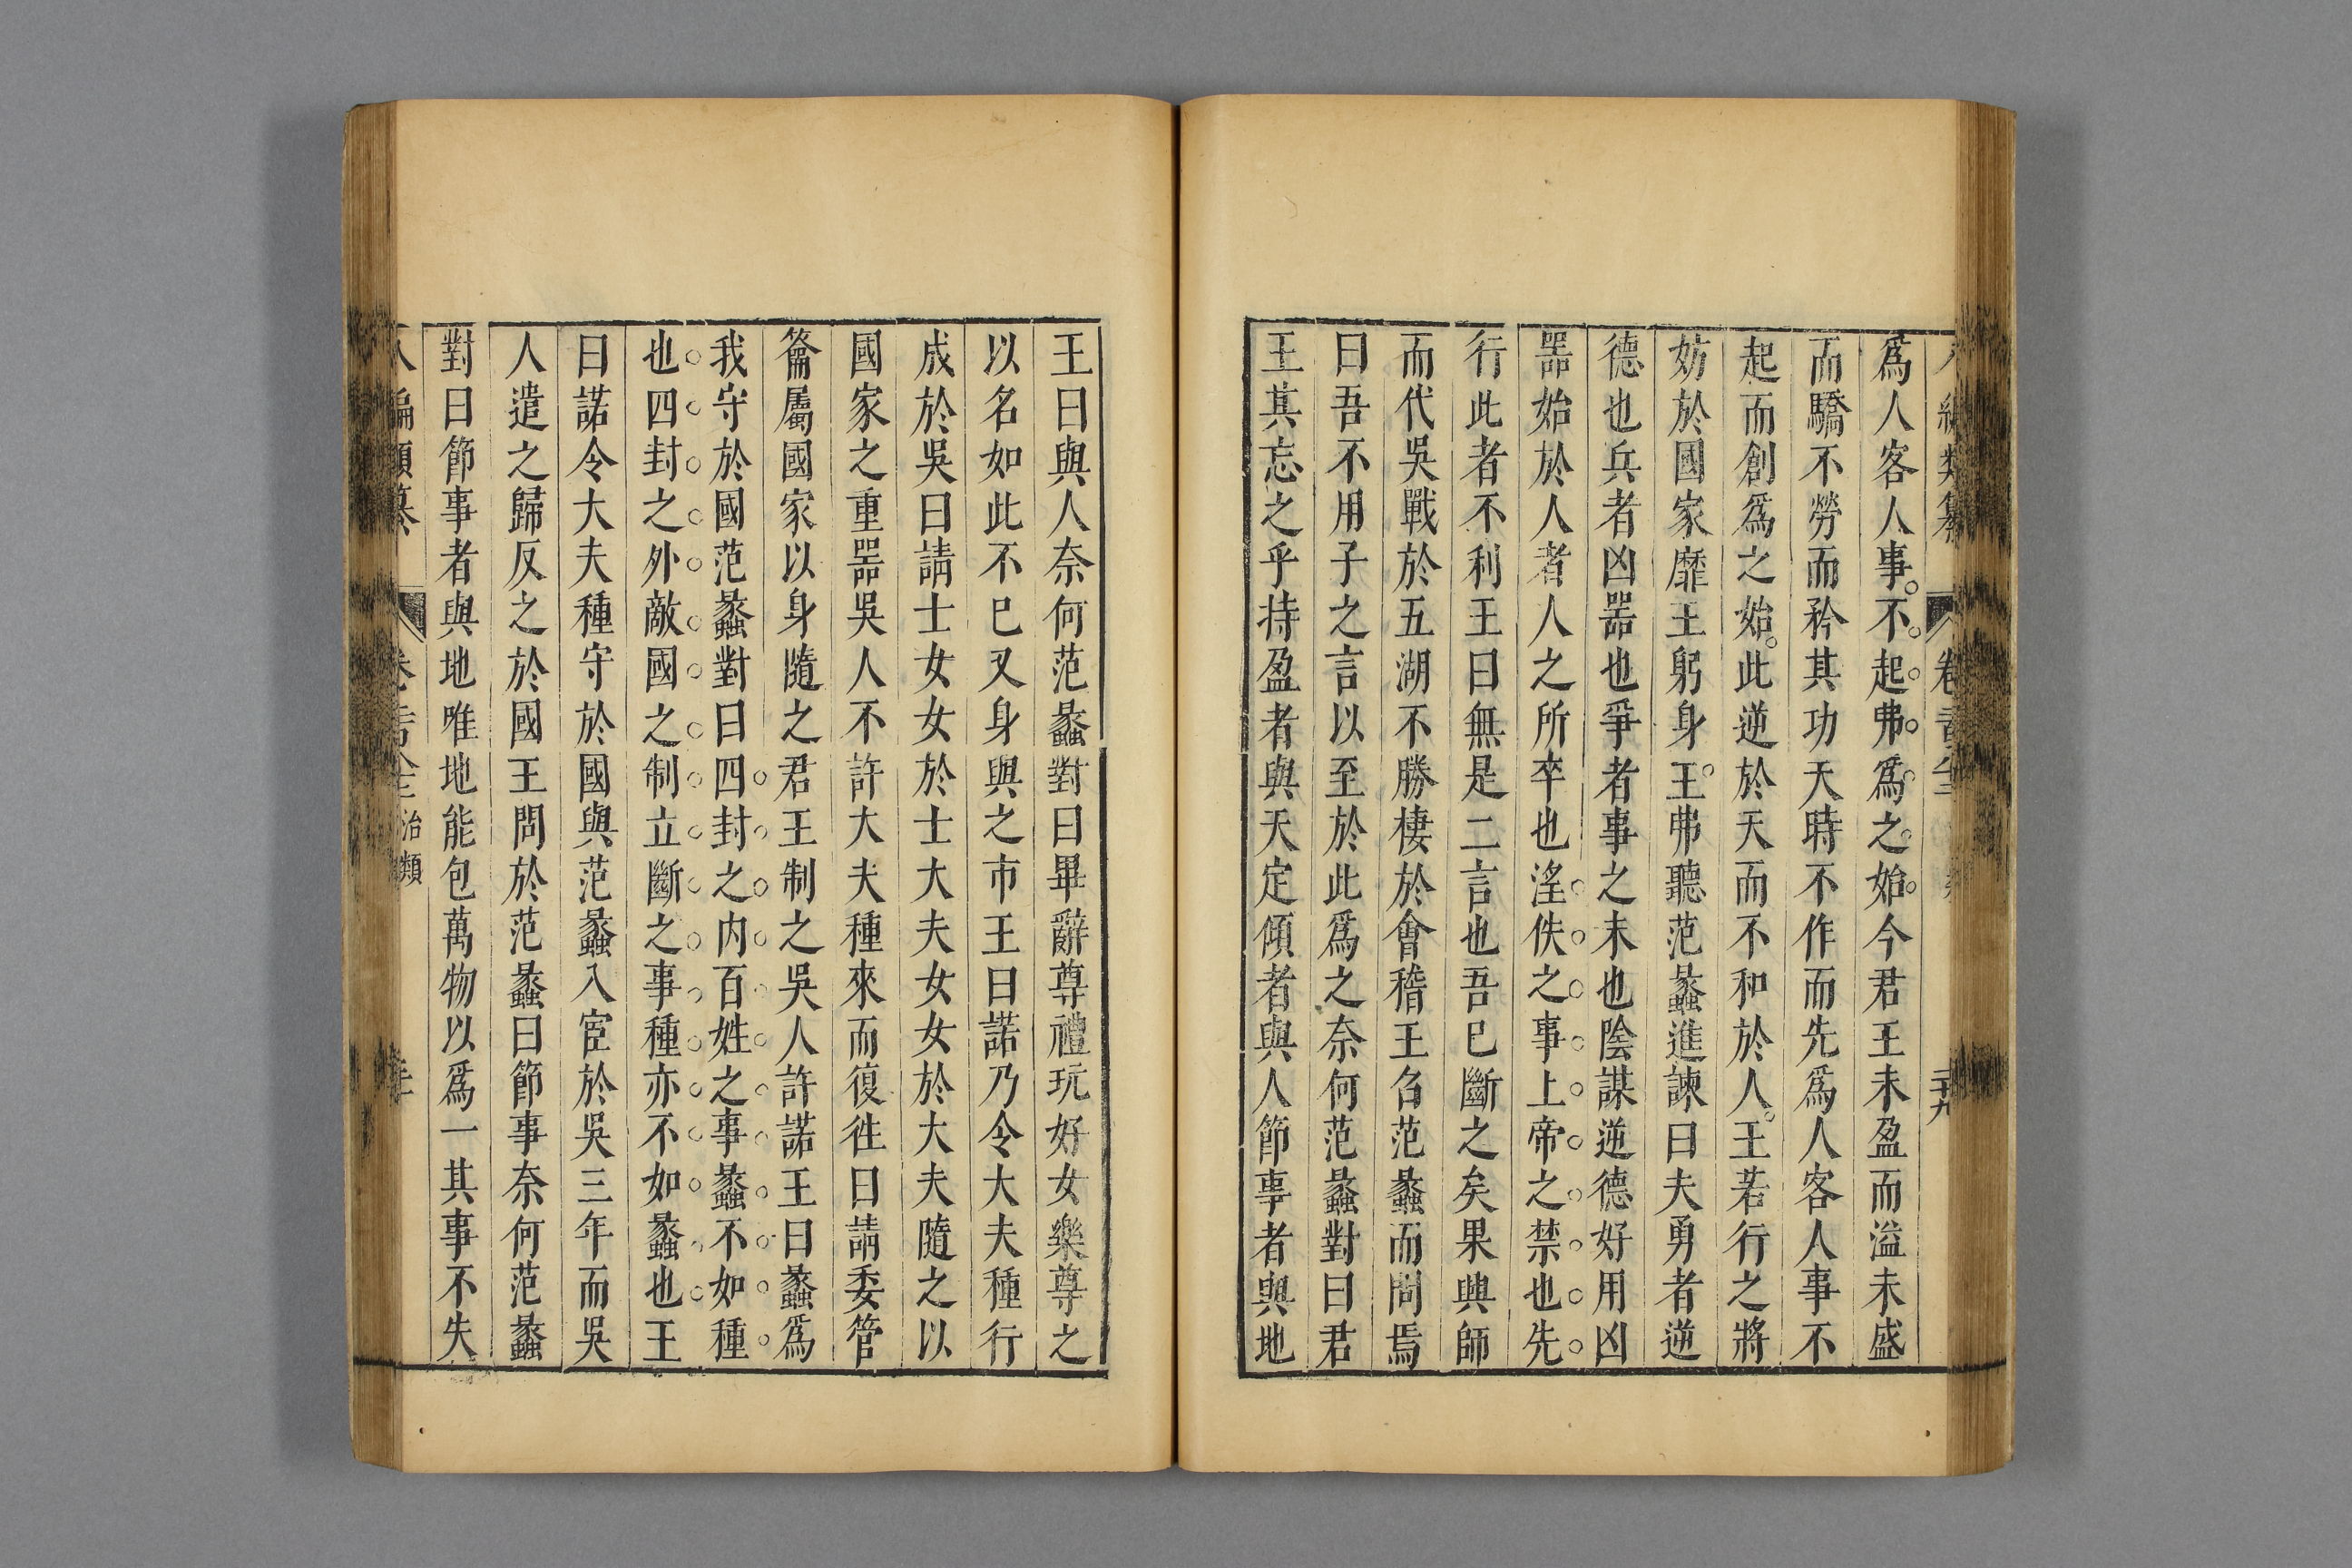 爲人客人事不起弗爲之始今君王未盈而溢未盛
而驕不勞而矜其功天時不作而先爲人客人事不
起而創爲之始此逆於天而不和於人王若行之將
妨於國家靡王躬身王弗聽范蠡進諫曰夫勇者逆
德也兵者凶噐也爭者事之末也陰謀逆德好用凶
噐始於人者人之所卒也淫佚之事上帝之禁也先
行此者不利王曰無是二言也吾已斷之矣果興師
而代吳戰於五湖不勝棲於會稽王召范蠡而問焉
曰吾不用子之言以至於此爲之奈何范蠡對曰君
王其忘之乎持盈者與天定傾者與人節事者與地
王曰與人奈何范蠡對曰畢辭尊禮玩好女樂尊之
以名如此不已又身與之市王曰諾乃令大夫種行
成於吳曰請士女女於士大夫女女於大夫隨之以
國家之重噐吳人不許大夫種來而復徃曰請委管
籥屬國家以身隨之君王制之吳人許諾王曰蠡爲
我守於國范蠡對曰四封之内百姓之事蠡不如種
也四封之外敵國之制立斷之事種亦不如蠡也王
曰諾令大夫種守於國與范蠡入宦於吳三年而吳
人遣之歸反之於國王問於范蠡曰節事奈何范蠡
對曰節事者與地唯地能包萬物以爲一其事不失
治類